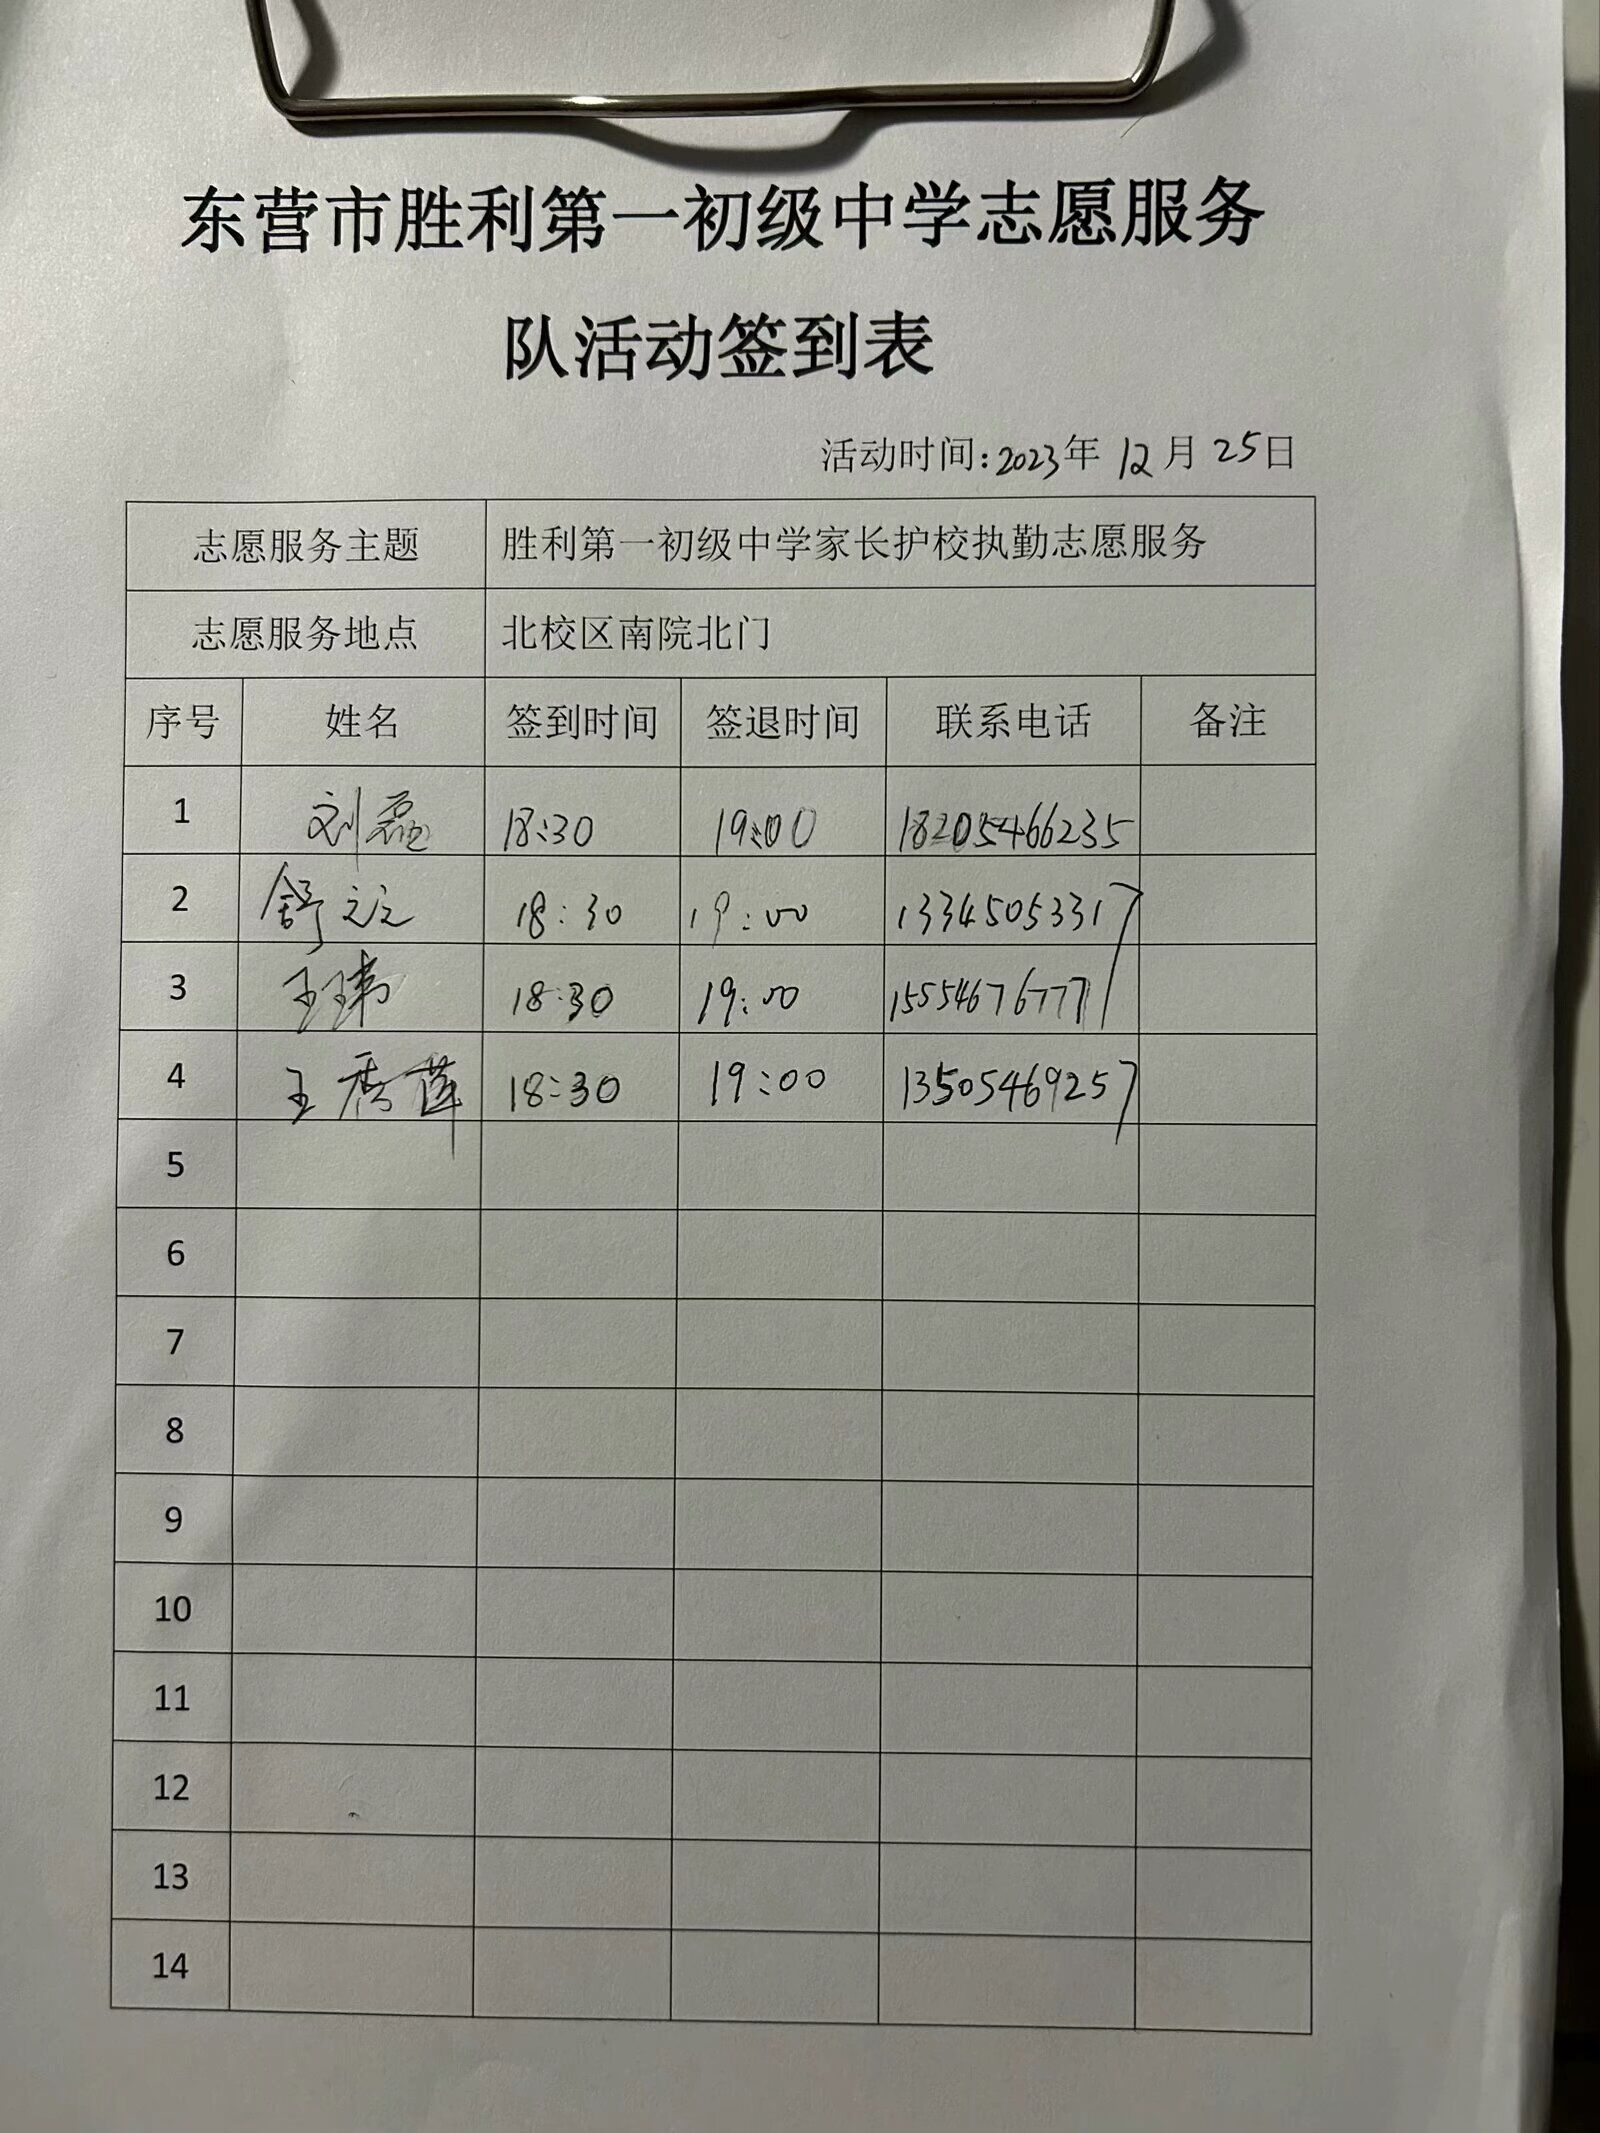 东营市胜利第一初级中学志愿服务
队活动签到表
活动时间:2023年 12月 25日
志愿服务主题 胜利第一初级中学家长护校执勤志愿服务
志愿服务地点 北校区南院北门
序号 姓名 签到时间 签退时间 联系电话 备注
1 刘磊 18:30 19:00 18205466235
2 舒 18:30 19:00 13345053317
3 王玮 18:30 19:00 15554676777
4 王秀莲 18:30 19:00 13505469257
5
6
7
8
9
10
11
12
13
14